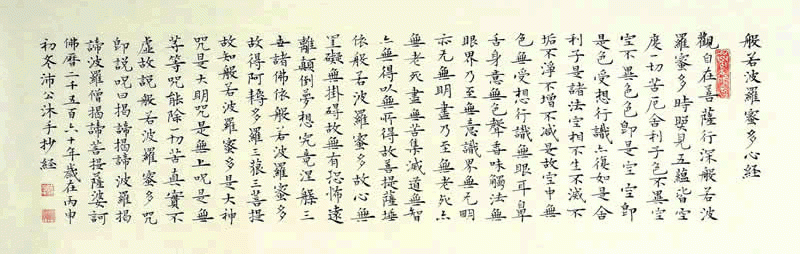 般若波羅蜜多心經
觀自在菩薩行深般若波
羅蜜多時照見五蘊皆空
度一切苦厄舍利子色不異空
空不異色色即是空空即
是色受想行識亦復如是舍
利子是諸法空相不生不滅不
垢不淨不增不減是故空中無
色無受想行識無眼耳鼻
舌身意無色聲香味觸法無
眼界乃至無意識界無无明
亦无無明盡乃至無老死亦
無老死盡無苦集滅道無智
亦無得以無所得故菩提薩埵
依般若波羅蜜多故心無
罣礙無掛礙故無有恐怖遠
離顛倒夢想究竟涅槃三
世諸佛依般若波羅蜜多
故得阿耨多羅三藐三菩提
故知般若波羅蜜多是大神
咒是大明咒是無上咒是無
等等咒能除一切苦真實不
虛故說般若波羅蜜多咒
即說咒曰揭諦揭諦波羅揭
諦波羅僧揭諦菩提薩婆訶
佛曆二千五百六十年歲在丙申
初冬沛公沐手抄經